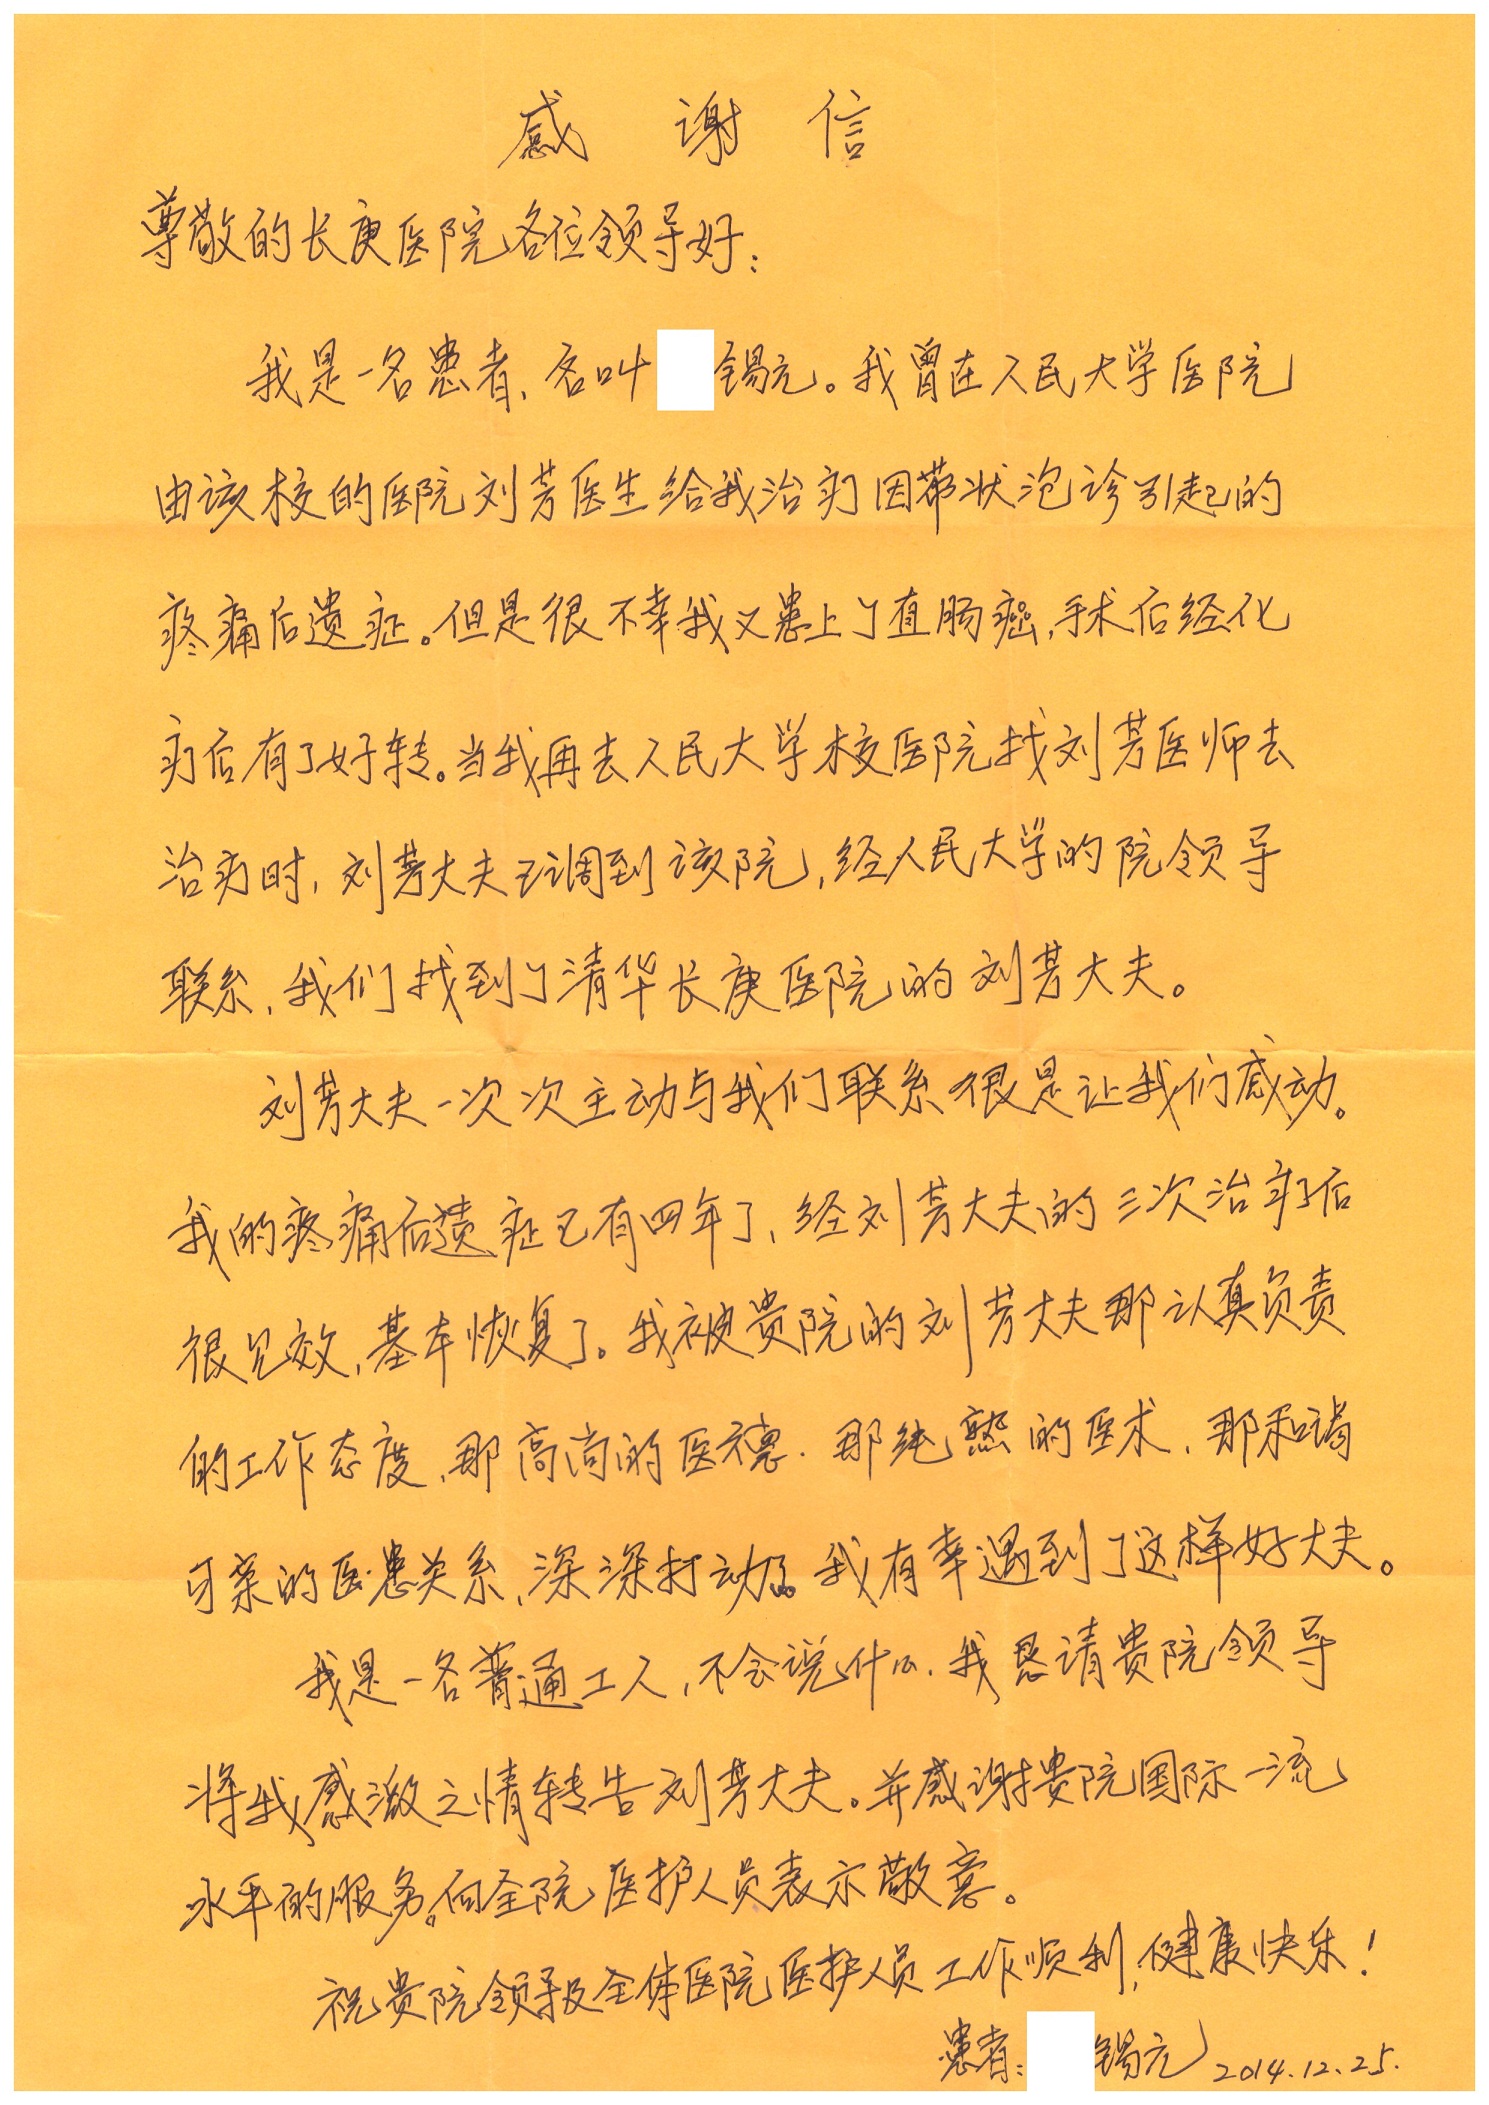 感谢信
尊敬的长庚医院各位领导好：
我是一名患者，名叫 锡元。我曾在人民大学医院
由该校的医院刘芳医生给我治疗因带状泡诊引起的
疼痛后遗症。但是很不幸我又患上了直肠癌，手术后经化
疗后有了好转。当我再去人民大学校医院找刘芳医师去
治疗时，刘芳大夫已调到该院，经人民大学的院领导
联系，我们找到了清华长庚医院的刘芳大夫。
刘芳大夫一次次主动与我们联系很是让我们感动。
我的疼痛后遗症已有四年了，经刘芳大夫的三次治疗后
很见效，基本恢复了。我被贵院的刘芳大夫那认真负责
的工作态度，那高尚的医德．那纯熟的医术，那和谒
可亲的医患关系，深深打动了。我有幸遇到了这样好大夫。
我是一名普通工人，不会说什么．我恳请贵院领导
将我感激之情转告刘芳大夫。并感谢贵院国际一流
水平的服务。向全院医护人员表示敬意。
祝贵院领导及全体医院医护人员工作顺利，健康快乐！
患者： 锡元 2014.12.25.